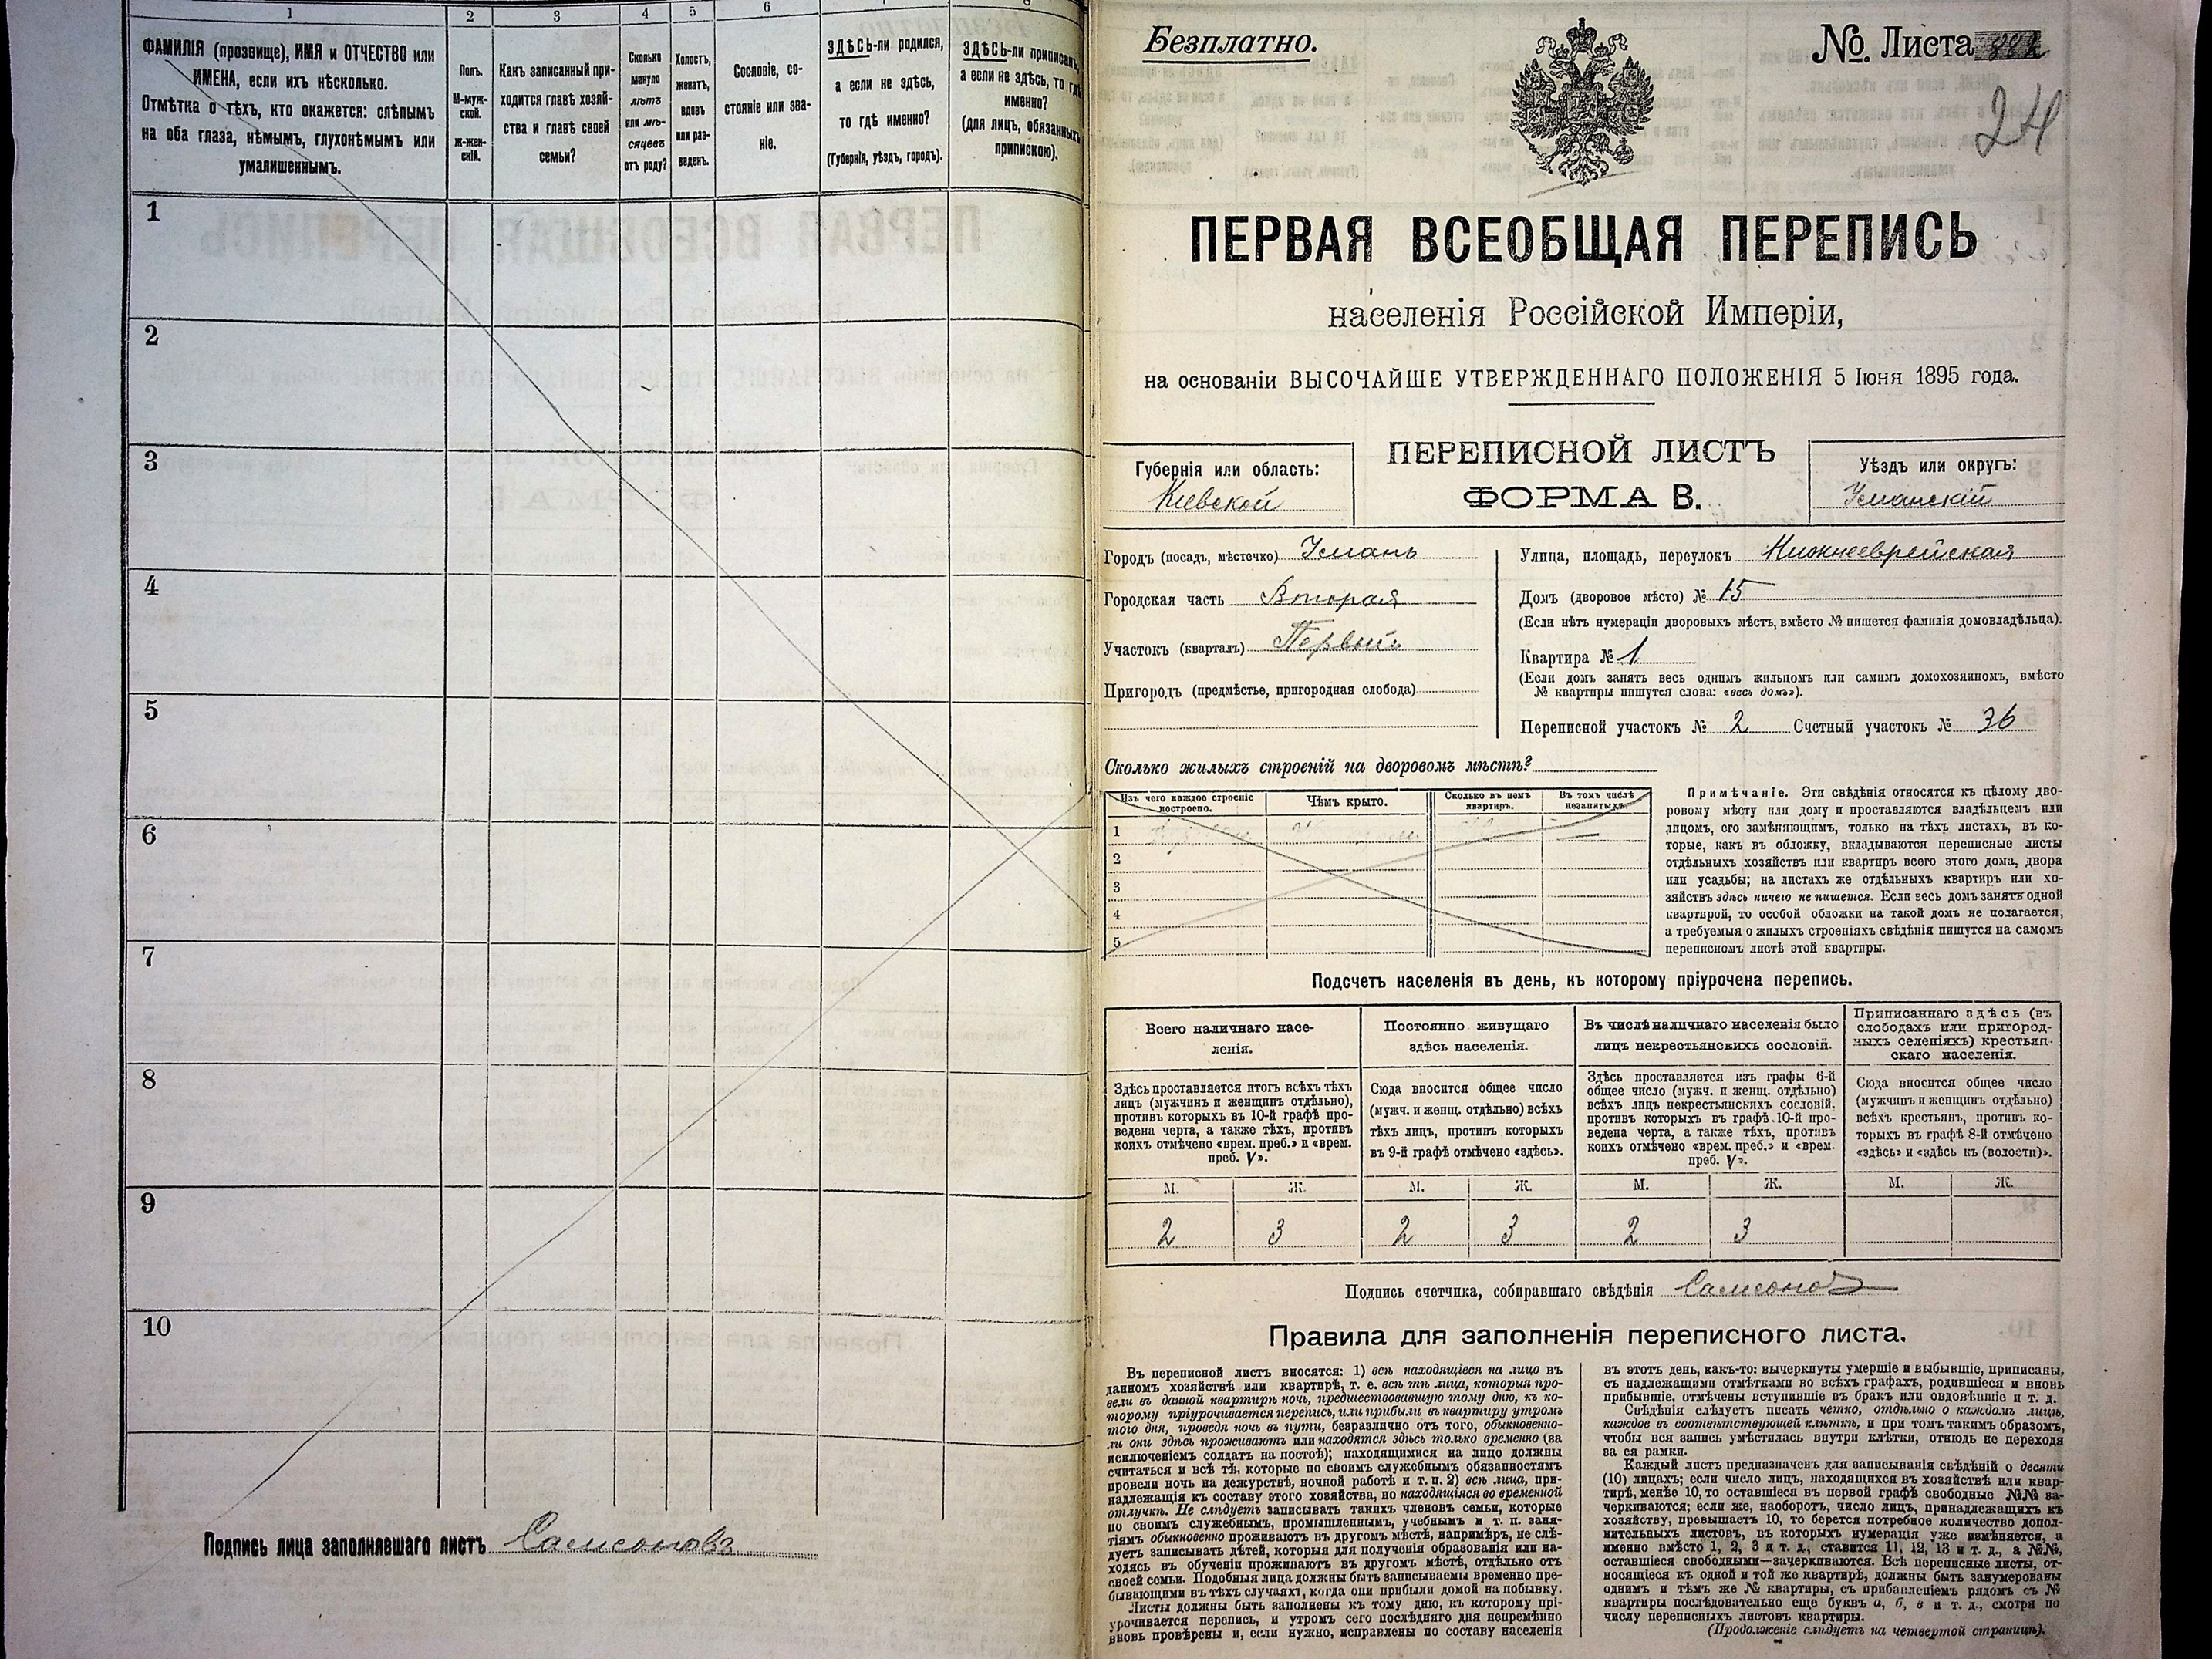 1 2 3 4 5 6
ФАМИЛІЯ (прозвище), ИМЯ и ОТЧЕСТВО или
ИМЕНА, если ихъ нѣсколько.
Отмѣтка о тѣхъ, кто окажется: слѣпымъ
на оба глаза, нѣмымъ, глухонѣмымъ или
умалишеннымъ.
Полъ.
М-муж-
ской.
ж-жен-
скій.
Какъ записанный при-
ходится главѣ хозяй-
ства и главѣ своей
семьи?
Сколько
минуло
лѣтъ
или мѣ-
сяцевъ
отъ роду?
Холостъ,
женатъ,
вдовъ
или раз-
веденъ.
Сословіе, со-
стояніе или зва-
ніе.
ЗДѢСЬ-ли родился,
а если не здѣсь,
то гдѣ именно?
(Губернія, уѣздъ, городъ).
ЗДѢСЬ-ли приписанъ,
а если не здѣсь, то гдѣ
именно?
(для лицъ, обязанныхъ
припискою).
1
2
3
4
5
6
7
8
9
10
Подпись лица заполнявшаго листъ Самсоновъ
Безплатно.
№ Листа
24
ПЕРВАЯ ВСЕОБЩАЯ ПЕРЕПИСЬ
населенія Россійской Имперіи,
на основаніи ВЫСОЧАЙШЕ УТВЕРЖДЕННАГО ПОЛОЖЕНІЯ 5 Іюня 1895 года.
Губернія или область:
Киевской
ПЕРЕПИСНОЙ ЛИСТЪ
ФОРМА В.
Уѣздъ или округъ:
Уманскій
Городъ (посадъ, мѣстечко) Умань
Городская часть Вторая
Участокъ (кварталъ) Первый
Пригородъ (предмѣстье, пригородная слобода)
Улица, площадь, переулокъ Нижнееврейская
Домъ (дворовое мѣсто) № 15
(Если нѣтъ нумераціи дворовыхъ мѣстъ, вмѣсто № пишется фамилія домовладѣльца).
Квартира № 1
(Если домъ занятъ весь однимъ жильцомъ или самимъ домохозяиномъ, вмѣсто
№ квартиры пишутся слова: «весь домъ»).
Переписной участокъ № 2 Счетный участокъ № 36
Сколько жилыхъ строеній на дворовомъ мѣстѣ?
Изъ чего каждое строеніе
построено.
Чѣмъ крыто.
Сколько въ немъ
квартиръ.
Въ томъ числѣ
незанятыхъ.
1
2
3
4
5
Примѣчаніе. Эти свѣдѣнія относятся къ цѣлому дво-
ровому мѣсту или дому и проставляются владѣльцемъ или
лицомъ, его замѣняющимъ, только на тѣхъ листахъ, въ ко-
торые, какъ въ обложку, вкладываются переписные листы
отдѣльныхъ хозяйствъ или квартиръ всего этого дома, двора
или усадьбы; на листахъ же отдѣльныхъ квартиръ или хо-
зяйствъ здѣсь ничего не пишется. Если весь домъ занятъ одной
квартирой, то особой обложки на такой домъ не полагается,
а требуемыя о жилыхъ строеніяхъ свѣдѣнія пишутся на самомъ
переписномъ листѣ этой квартиры.
Подсчетъ населенія въ день, къ которому пріурочена перепись.
Всего наличнаго насе-
ленія.
Постоянно живущаго
здѣсь населенія.
Въ числѣ наличнаго населенія было
лицъ некрестьянскихъ сословій.
Приписаннаго здѣсь (въ
слободахъ или пригород-
ныхъ селеніяхъ) крестьян-
скаго населенія.
Здѣсь проставляется итогъ всѣхъ тѣхъ
лицъ (мужчинъ и женщинъ отдѣльно),
противъ которыхъ въ 10-й графѣ про-
ведена черта, а также тѣхъ, противъ
коихъ отмѣчено «врем. преб.» и «врем.
преб. V».
Сюда вносится общее число
(мужч. и женщ. отдѣльно) всѣхъ
тѣхъ лицъ, противъ которыхъ
въ 9-й графѣ отмѣчено «здѣсь».
Здѣсь проставляется изъ графы 6-й
общее число (мужч. и женщ. отдѣльно)
всѣхъ лицъ некрестьянскихъ сословій,
противъ которыхъ въ графѣ 10-й про-
ведена черта, а также тѣхъ, противъ
коихъ отмѣчено «врем. преб.» и «врем.
преб. V».
Сюда вносится общее число
(мужчинъ и женщинъ отдѣльно)
всѣхъ крестьянъ, противъ ко-
торыхъ въ графѣ 8-й отмѣчено
«здѣсь» и «здѣсь къ (волости)».
М. Ж. М. Ж. М. Ж. М. Ж.
2 3 2 3 2 3
Подпись счетчика, собиравшаго свѣдѣнія Самсоновъ
Правила для заполненія переписного листа.
Въ переписной листъ вносятся: 1) всѣ находящіеся на лицо въ
данномъ хозяйствѣ или квартирѣ, т. е. всѣ тѣ лица, которыя про-
вели въ данной квартирѣ ночь, предшествовавшую тому дню, къ ко-
торому пріурочивается перепись, или прибыли въ квартиру утромъ
того дня, проведя ночь въ пути, безразлично отъ того, обыкновенно-
ли они здѣсь проживаютъ или находятся здѣсь только временно (за
исключеніемъ солдатъ на постоѣ); находящимися на лицо должны
считаться и всѣ тѣ, которые по своимъ служебнымъ обязанностямъ
провели ночь на дежурствѣ, ночной работѣ и т. п. 2) всѣ лица, при-
надлежащія къ составу этого хозяйства, но находящіяся во временной
отлучкѣ. Не слѣдуетъ записывать такихъ членовъ семьи, которые
по своимъ служебнымъ, промышленнымъ, учебнымъ и т. п. заня-
тіямъ обыкновенно проживаютъ въ другомъ мѣстѣ, напримѣръ, не слѣ-
дуетъ записывать дѣтей, которыя для полученія образованія или на-
ходясь въ обученіи проживаютъ въ другомъ мѣстѣ, отдѣльно отъ
своей семьи. Подобныя лица должны быть записываемы временно пре-
бывающими въ тѣхъ случаяхъ, когда они прибыли домой на побывку.
Листы должны быть заполнены къ тому дню, къ которому прі-
урочивается перепись, и утромъ сего послѣдняго дня непремѣнно
вновь провѣрены и, если нужно, исправлены по составу населенія
въ этотъ день, какъ-то: вычеркнуты умершіе и выбывшіе, приписаны,
съ надлежащими отмѣтками во всѣхъ графахъ, родившіеся и вновь
прибывшіе, отмѣчены вступившіе въ бракъ или овдовѣвшіе и т. д.
Свѣдѣнія слѣдуетъ писать четко, отдѣльно о каждомъ лицѣ,
каждое въ соотвѣтствующей клѣткѣ, и при томъ такимъ образомъ,
чтобы вся запись умѣстилась внутри клѣтки, отнюдь не переходя
за ея рамки.
Каждый листъ предназначенъ для записыванія свѣдѣній о десяти
(10) лицахъ; если число лицъ, находящихся въ хозяйствѣ или квар-
тирѣ, менѣе 10, то оставшіеся въ первой графѣ свободные №№ за-
черкиваются; если же, наоборотъ, число лицъ, принадлежащихъ къ
хозяйству, превышаетъ 10, то берется потребное количество допол-
нительныхъ листовъ, въ которыхъ нумерація уже измѣняется, а
именно вмѣсто 1, 2, 3 и т. д., ставится 11, 12, 13 и т. д., а №№,
оставшіеся свободными—зачеркиваются. Всѣ переписные листы, от-
носящіеся къ одной и той же квартирѣ, должны быть занумерованы
однимъ и тѣмъ же № квартиры, съ прибавленіемъ рядомъ съ №
квартиры послѣдовательно еще буквъ а, б, в и т. д., смотря по
числу переписныхъ листовъ квартиры.
(Продолженіе слѣдуетъ на четвертой страницѣ).